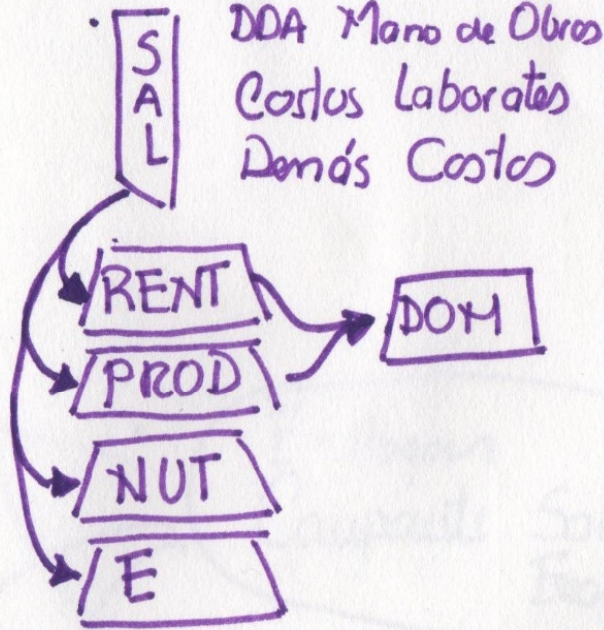 SAL
DDA Mano de Obras
Costos Laborates
Demás Costos
RENT
DOM
PROD
NUT
E